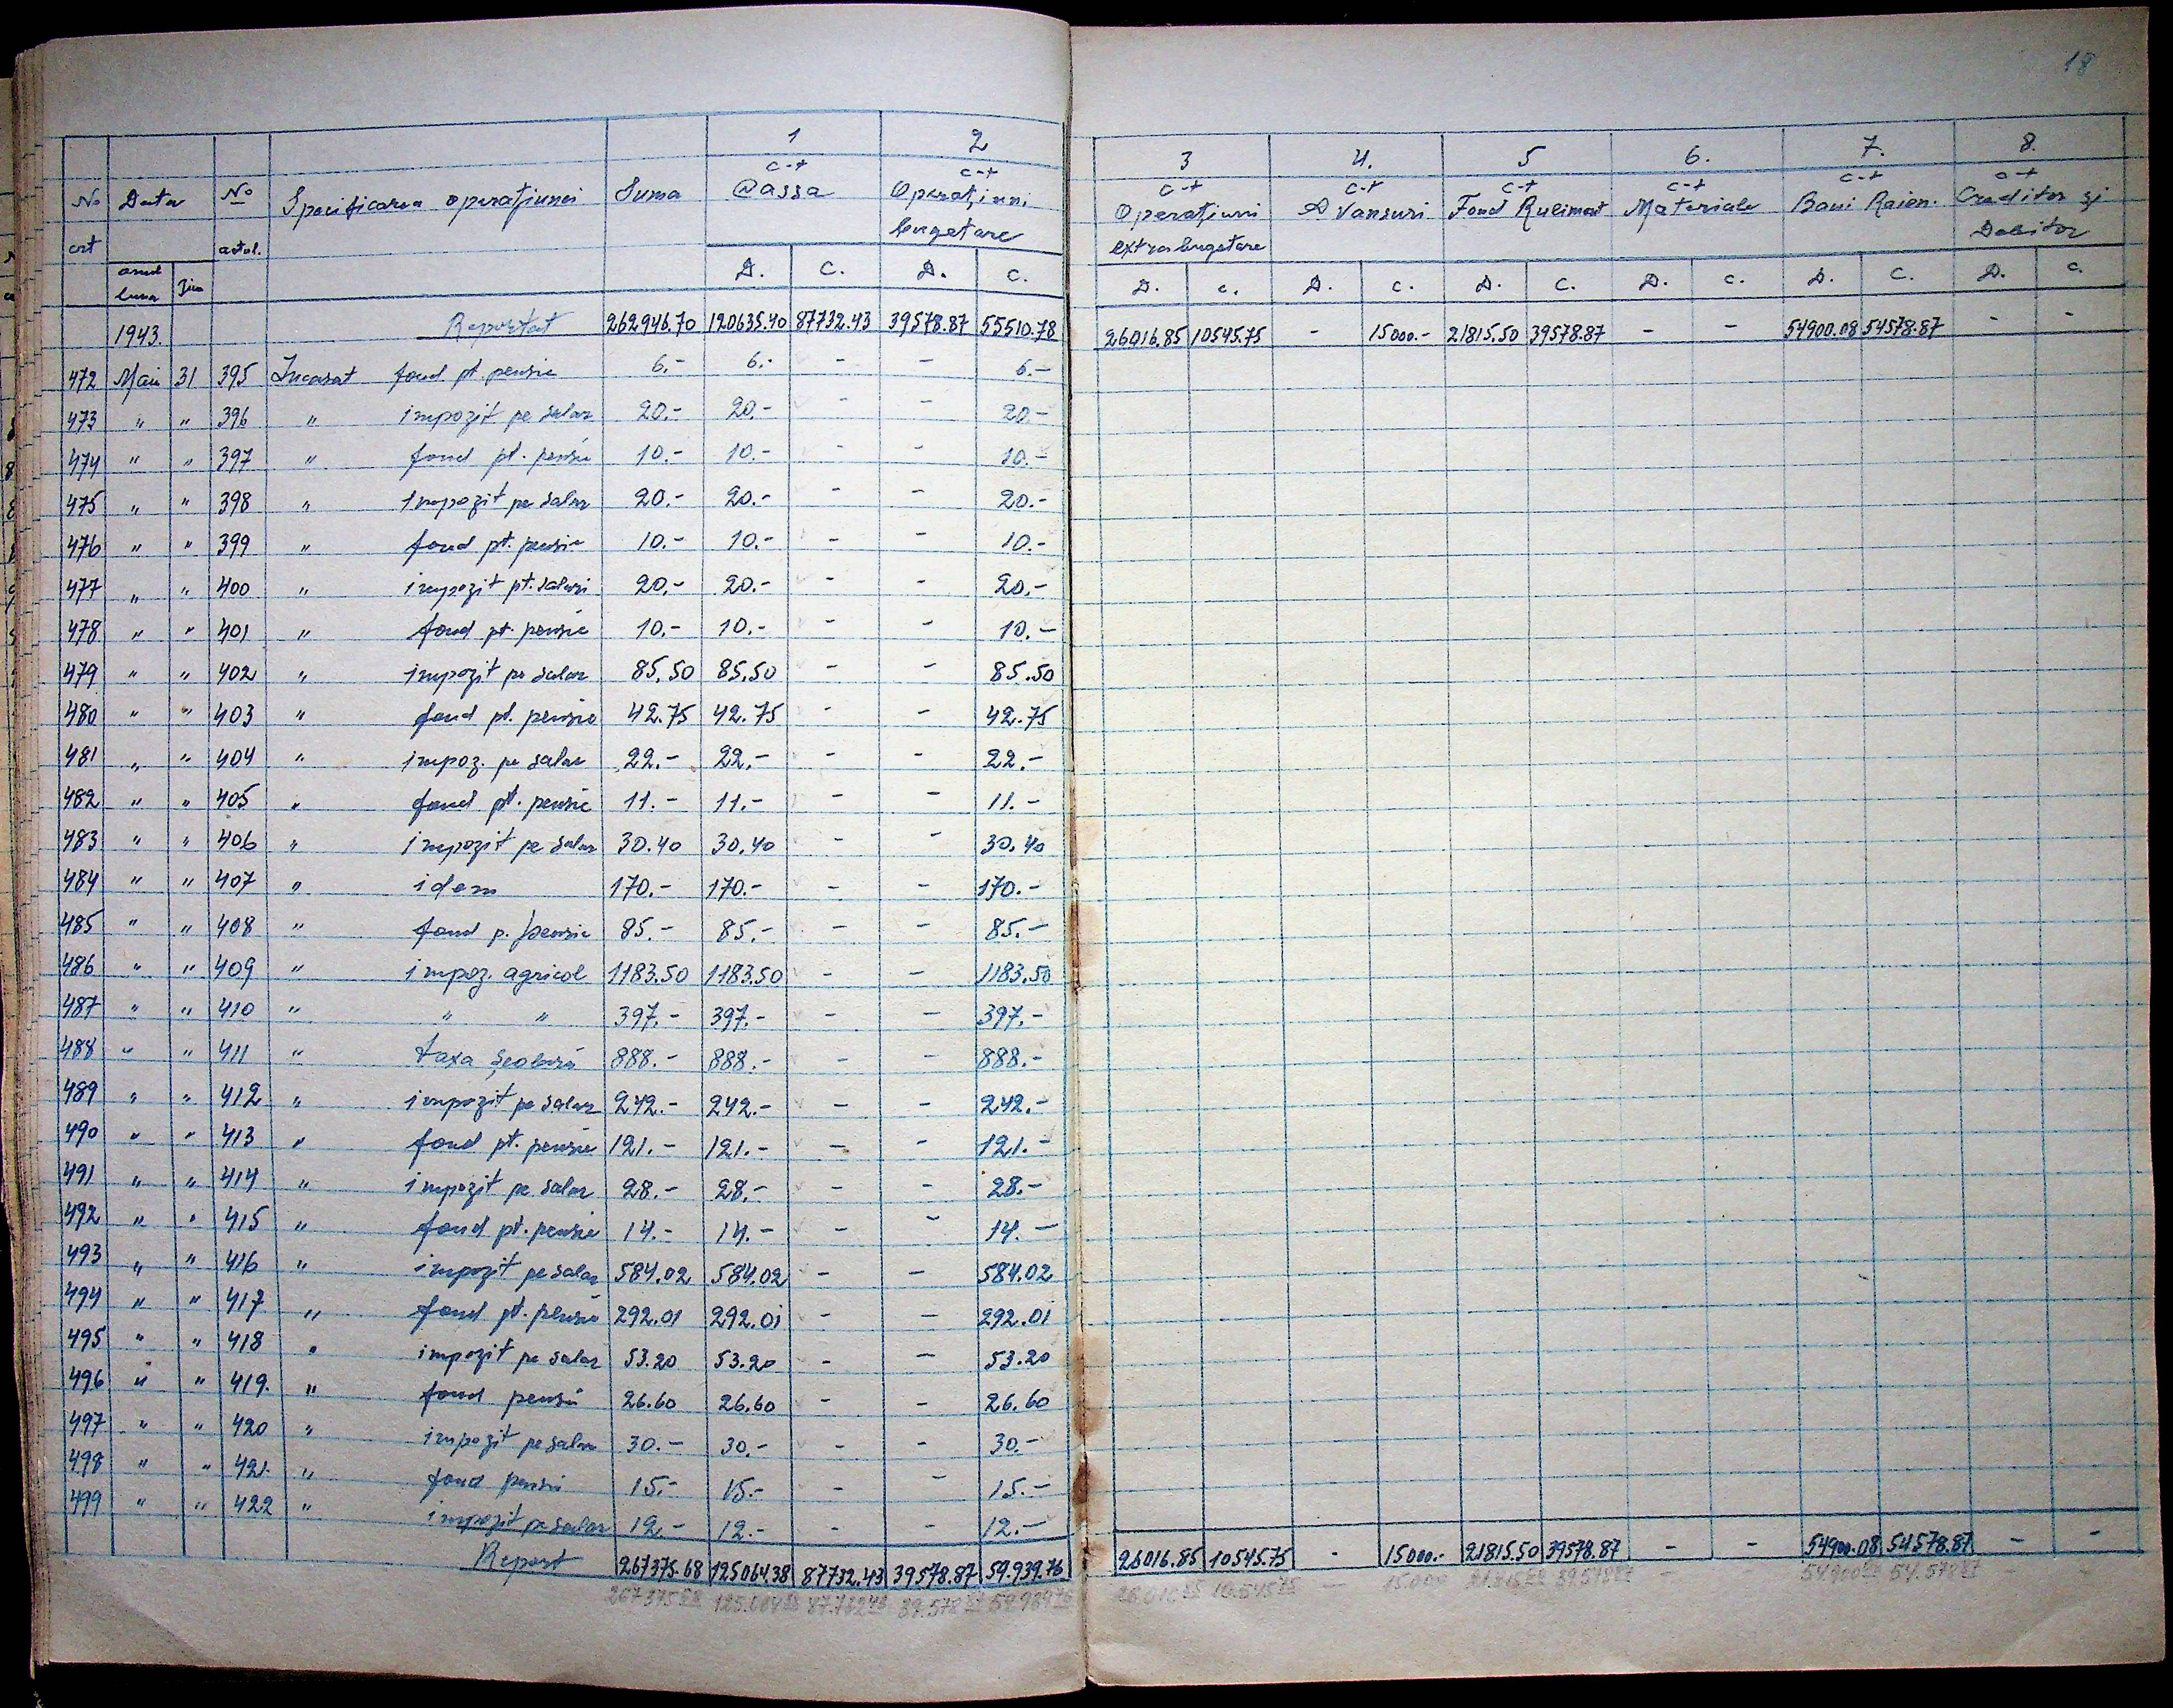 18
1 2 3 4. 5 6. 7. 8.
No crt Data anul luna Ziua No actul. Specificarea operațiunei Suma c-t Cassa c-t Operațiuni bugetare c-t Operațiuni extrabugetare c-t Avansuri c-t Fond Ruliment c-t Materiale c-t Bani Raion. c-t Creditor și Debitor
D. C. D. C. D. C. D. C. D. C. D. C. D. C. D. C.
1943. Reportat 262946.70 120635.40 87732.43 39578.87 55510.78 26016.85 10545.75 - 15000.- 21815.50 39578.87 - - 54900.08 54578.87 - -
472 Mai 31 395 Incasat fond pt. pensie 6.- 6.- - - 6.-
473 " " 396 " impozit pe salar 20.- 20.- - - 20.-
474 " " 397 " fond pt. pensie 10.- 10.- - - 10.-
475 " " 398 " impozit pe salar 20.- 20.- - - 20.-
476 " " 399 " fond pt. pensie 10.- 10.- - - 10.-
477 " " 400 " impozit pt. salari 20.- 20.- - - 20.-
478 " " 401 " fond pt. pensie 10.- 10.- - - 10.-
479 " " 402 " impozit pe salar 85.50 85.50 - - 85.50
480 " " 403 " fond pt. pensie 42.75 42.75 - - 42.75
481 " " 404 " impoz. pe salar 22.- 22.- - - 22.-
482 " " 405 " fond pt. pensie 11.- 11.- - - 11.-
483 " " 406 " impozit pe salar 30.40 30.40 - - 30.40
484 " " 407 " idem 170.- 170.- - - 170.-
485 " " 408 " fond p. pensie 85.- 85.- - - 85.-
486 " " 409 " impoz. agricol 1183.50 1183.50 - - 1183.50
487 " " 410 " " " 397.- 397.- - - 397.-
488 " " 411 " taxa școlară 888.- 888.- - - 888.-
489 " " 412 " impozit pe salar 242.- 242.- - - 242.-
490 " " 413 " fond pt. pensie 121.- 121.- - - 121.-
491 " " 414 " impozit pe salar 28.- 28.- - - 28.-
492 " " 415 " fond pt. pensie 14.- 14.- - - 14.-
493 " " 416 " impozit pe salar 584.02 584.02 - - 584.02
494 " " 417 " fond pt. pensie 292.01 292.01 - - 292.01
495 " " 418 " impozit pe salar 53.20 53.20 - - 53.20
496 " " 419. " fond pensii 26.60 26.60 - - 26.60
497 " " 420 " impozit pe salar 30.- 30.- - - 30.-
498 " " 421. " fond pensii 15.- 15.- - - 15.-
499 " " 422 " impozit pe salar 12.- 12.- - - 12.-
Report 267375.68 125064.38 87732.43 39578.87 59.939.76 26016.85 10545.75 - 15000.- 21815.50 39578.87 - - 54900.08 54578.87 - -